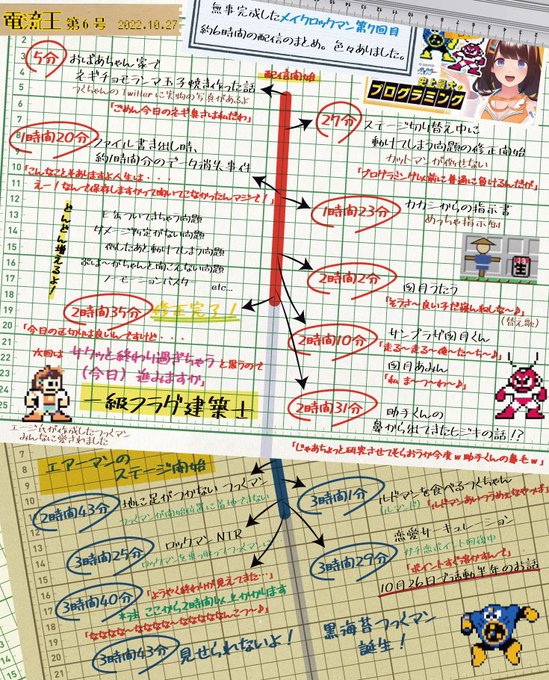 電流王 第6号 2022.10.27
無事完成したメイクロックマン第7回目
約6時間の配信のまとめ。色々ありました。
プログラミング
配信開始
5分
おばあちゃん家で
ネギチョモランマ玉子焼き作った話
つくちゃんのTwitterに実物の写真があるよ
「ごめん今日のネギ臭さは私だわ」
27分
ステージ切り替え中に
動けてしまう問題の修正開始
カットマンが倒せない
「プログラミング以前に普通に負けるんだが」
1時間20分
ファイル書き出し時、
約1時間分のデータ消失事件
「こんなこともありますよ人生は・・・
えー！なんで保存しますかって聞いてこなかったんマジで！」
1時間23分
カカシからの指示書
めっちゃ指示削
どんどん増えるよ！
ダメージ判定がない問題
倒したあと動けてしまう問題
おば〜がちゃんと聞こえない問題
etc...
2時間2分
図月うたう
「そうさ〜良い子だ寝んねしな〜♪」
(替え歌)
2時間35分
修正完了！
「今日の区切りは良いんですけど・・・
次回は サクッと終わり過ぎちゃう と思うので
(今日) 進みますか」
一級フラグ建築士
2時間10分
サンプラザ図月くん
「走る〜走る〜俺〜た〜ち〜♪」
図月あみん
「私 ま〜つ〜わ〜♪」
2時間31分
助手くんの
鼻から出てきたヒジキの話!?
「じゃあちょっと研究させてもらおうか今度w助手くんの鼻毛w」
エージ氏が作成したつくマン
みんなに愛されました
エアーマンの
ステージ開始
2時間43分
地に足がつかない つっくマン
3時間1分
ルドマンを食べるつくちゃん
3時間25分
ロックマンNTR
3時間29分
恋愛サーキュレーション
ガチ恋ポイント回収中
10月26日で活動半年のお話
3時間40分
「ようやく終わりが見えてきた…」
※注 ここから2時間以上かかります
「ななななな〜ななななな〜ななななななんこつ〜♪」
3時間43分
見せられないよ！
黒海苔つっくマン
誕生！